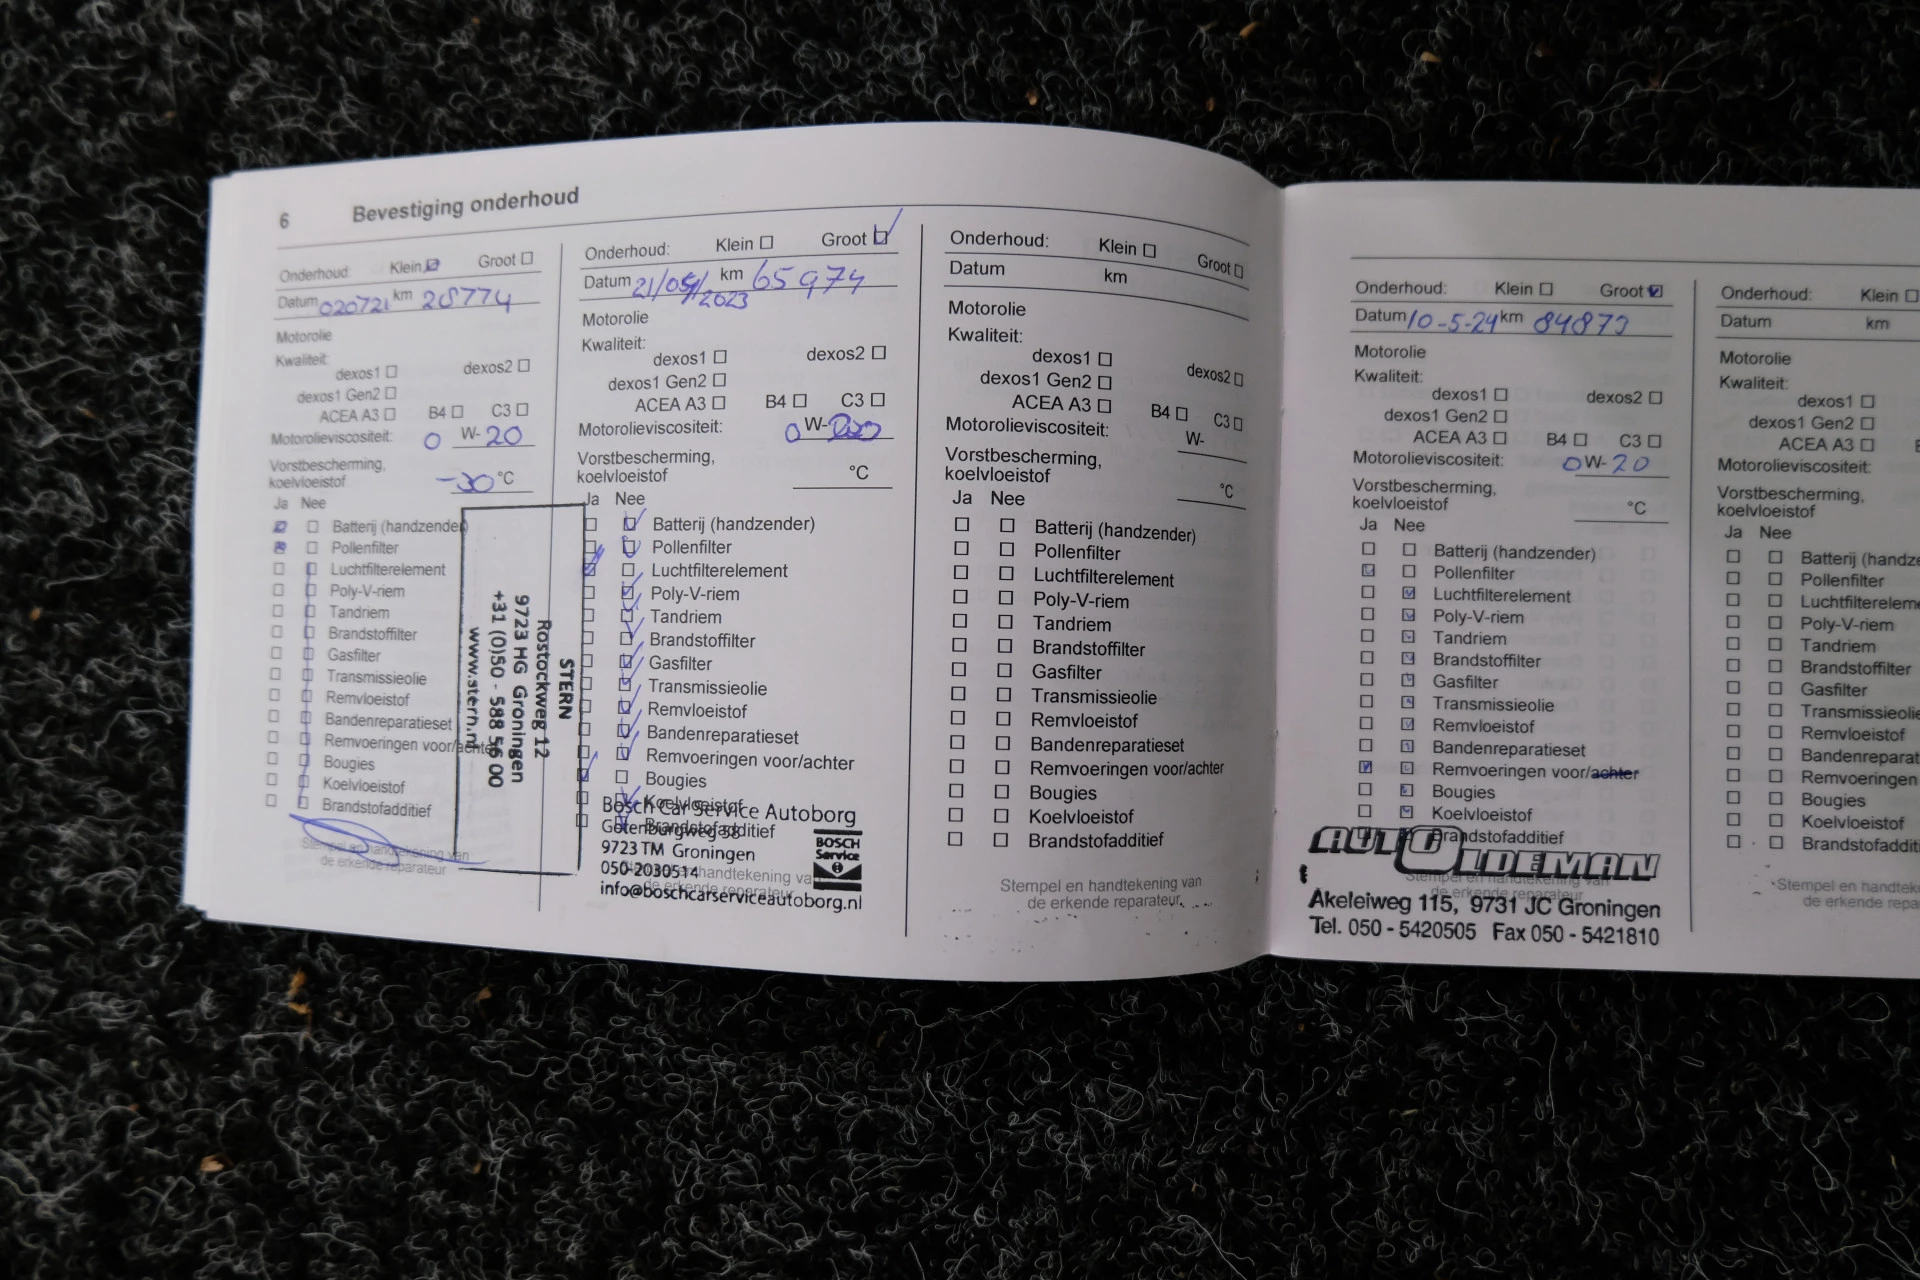 6 Bevestiging onderhoud
Onderhoud: Klein Groot
Datum 020721 km 28774
Motorolie
Kwaliteit:
dexos1 dexos2
dexos1 Gen2
ACEA A3 B4 C3
Motorolieviscositeit: 0 W- 20
Vorstbescherming,
koelvloeistof -30 °C
Ja Nee
Batterij (handzender)
Pollenfilter
Luchtfilterelement
Poly-V-riem
Tandriem
Brandstoffilter
Gasfilter
Transmissieolie
Remvloeistof
Bandenreparatieset
Remvoeringen voor/achter
Bougies
Koelvloeistof
Brandstofadditief
Stempel en handtekening van
de erkende reparateur
STERN
Rostockweg 12
9723 HG Groningen
+31 (0)50 - 588 56 00
www.stern.nl
Onderhoud: Klein Groot
Datum 21/05/2023 km 65974
Motorolie
Kwaliteit:
dexos1 dexos2
dexos1 Gen2
ACEA A3 B4 C3
Motorolieviscositeit: 0 W-
Vorstbescherming,
koelvloeistof °C
Ja Nee
Batterij (handzender)
Pollenfilter
Luchtfilterelement
Poly-V-riem
Tandriem
Brandstoffilter
Gasfilter
Transmissieolie
Remvloeistof
Bandenreparatieset
Remvoeringen voor/achter
Bougies
Koelvloeistof
Brandstofadditief
Stempel en handtekening van
de erkende reparateur
Bosch Car Service Autoborg
Gotenburgweg 58
9723 TM Groningen
050-2030514
info@boschcarserviceautoborg.nl
BOSCH
Service
Onderhoud: Klein Groot
Datum km
Motorolie
Kwaliteit:
dexos1 dexos2
dexos1 Gen2
ACEA A3 B4 C3
Motorolieviscositeit: W-
Vorstbescherming,
koelvloeistof °C
Ja Nee
Batterij (handzender)
Pollenfilter
Luchtfilterelement
Poly-V-riem
Tandriem
Brandstoffilter
Gasfilter
Transmissieolie
Remvloeistof
Bandenreparatieset
Remvoeringen voor/achter
Bougies
Koelvloeistof
Brandstofadditief
Stempel en handtekening van
de erkende reparateur
Onderhoud: Klein Groot
Datum 10-5-24 km 84873
Motorolie
Kwaliteit:
dexos1 dexos2
dexos1 Gen2
ACEA A3 B4 C3
Motorolieviscositeit: 0 W- 20
Vorstbescherming,
koelvloeistof °C
Ja Nee
Batterij (handzender)
Pollenfilter
Luchtfilterelement
Poly-V-riem
Tandriem
Brandstoffilter
Gasfilter
Transmissieolie
Remvloeistof
Bandenreparatieset
Remvoeringen voor/achter
Bougies
Koelvloeistof
Brandstofadditief
Stempel en handtekening van
de erkende reparateur
AUTO OLDEMAN
Akeleiweg 115, 9731 JC Groningen
Tel. 050 - 5420505 Fax 050 - 5421810
Onderhoud: Klein
Datum km
Motorolie
Kwaliteit:
dexos1
dexos1 Gen2
ACEA A3
Motorolieviscositeit:
Vorstbescherming,
koelvloeistof
Ja Nee
Batterij (handze
Pollenfilter
Luchtfilterelem
Poly-V-riem
Tandriem
Brandstoffilter
Gasfilter
Transmissieolie
Remvloeistof
Bandenreparat
Remvoeringen
Bougies
Koelvloeistof
Brandstofadditi
Stempel en handteke
de erkende repa